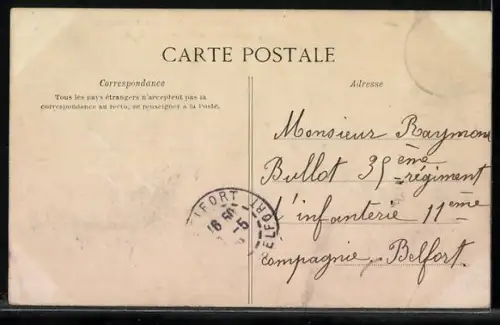 CARTE POSTALE
Correspondance
Tous les pays étrangers n'acceptent pas la
correspondance au recto, se renseigner à la Poste.
Adresse
Monsieur Raymon
Bullot 35ème
régiment
d'infanterie 11ème
compagnie, Belfort.
ELFORT
ELFORT